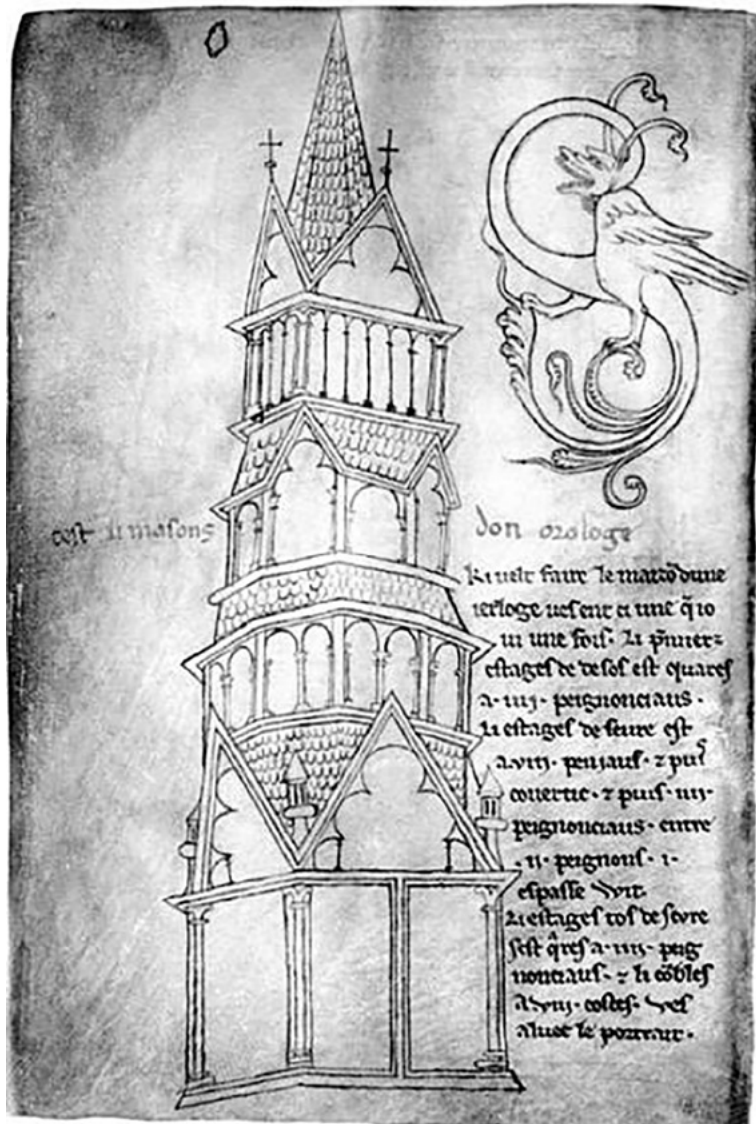 cest li masons don orologe
Ki velt faire le maizõ dune
ierloge ves ent ci une q̃ io
vi une fois. Li p̃mierz
estages de desos est quares
a .iiij. peignonciaus.
Li estages de seure est
a .viij. peniaus. z puis
covertic. z puis .iiij.
peignonciaus. entre
.ij. peignons. i.
espasse wit.
Li estages tos de seure
sest q̃res a .iiij. peig
nonciaus. z li cõbles
a .viij. costes. ves
aluec le portrait.